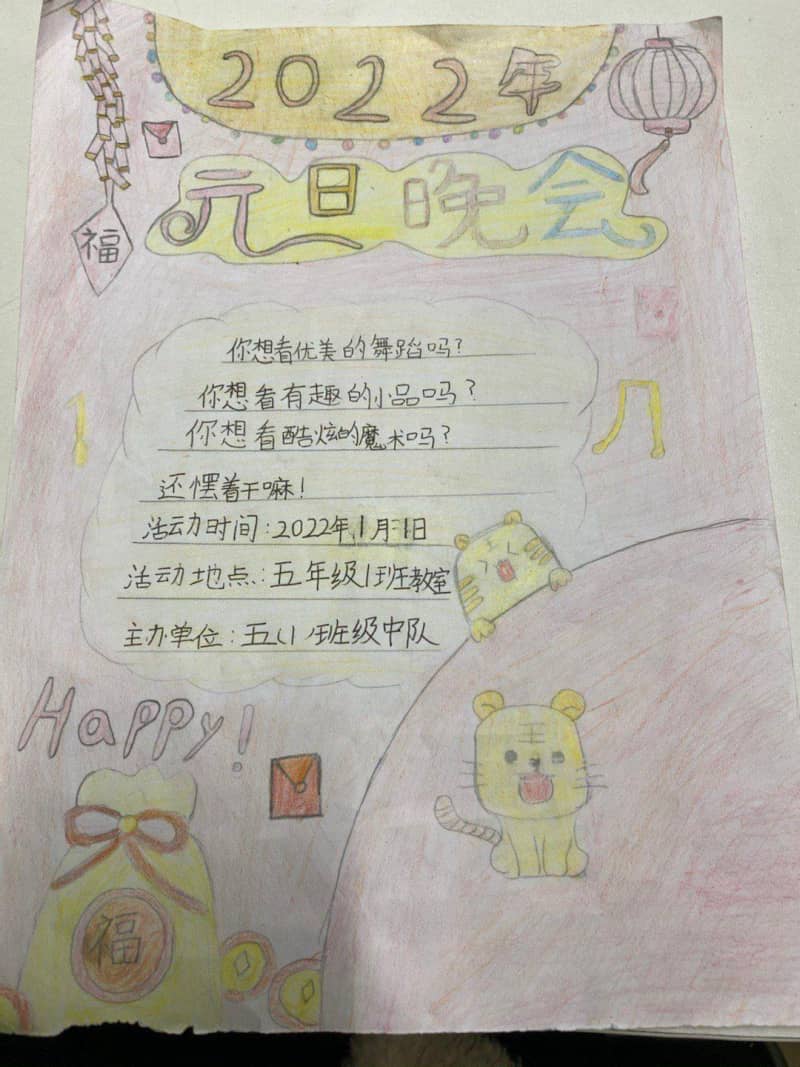 2022年
元旦晚会
福
你想看优美的舞蹈吗?
你想看有趣的小品吗?
你想看酷炫的魔术吗?
还摆着干嘛!
活动时间:2022年1月1日
活动地点:五年级1班教室
主办单位:五(1)班级中队
Happy!
王
福